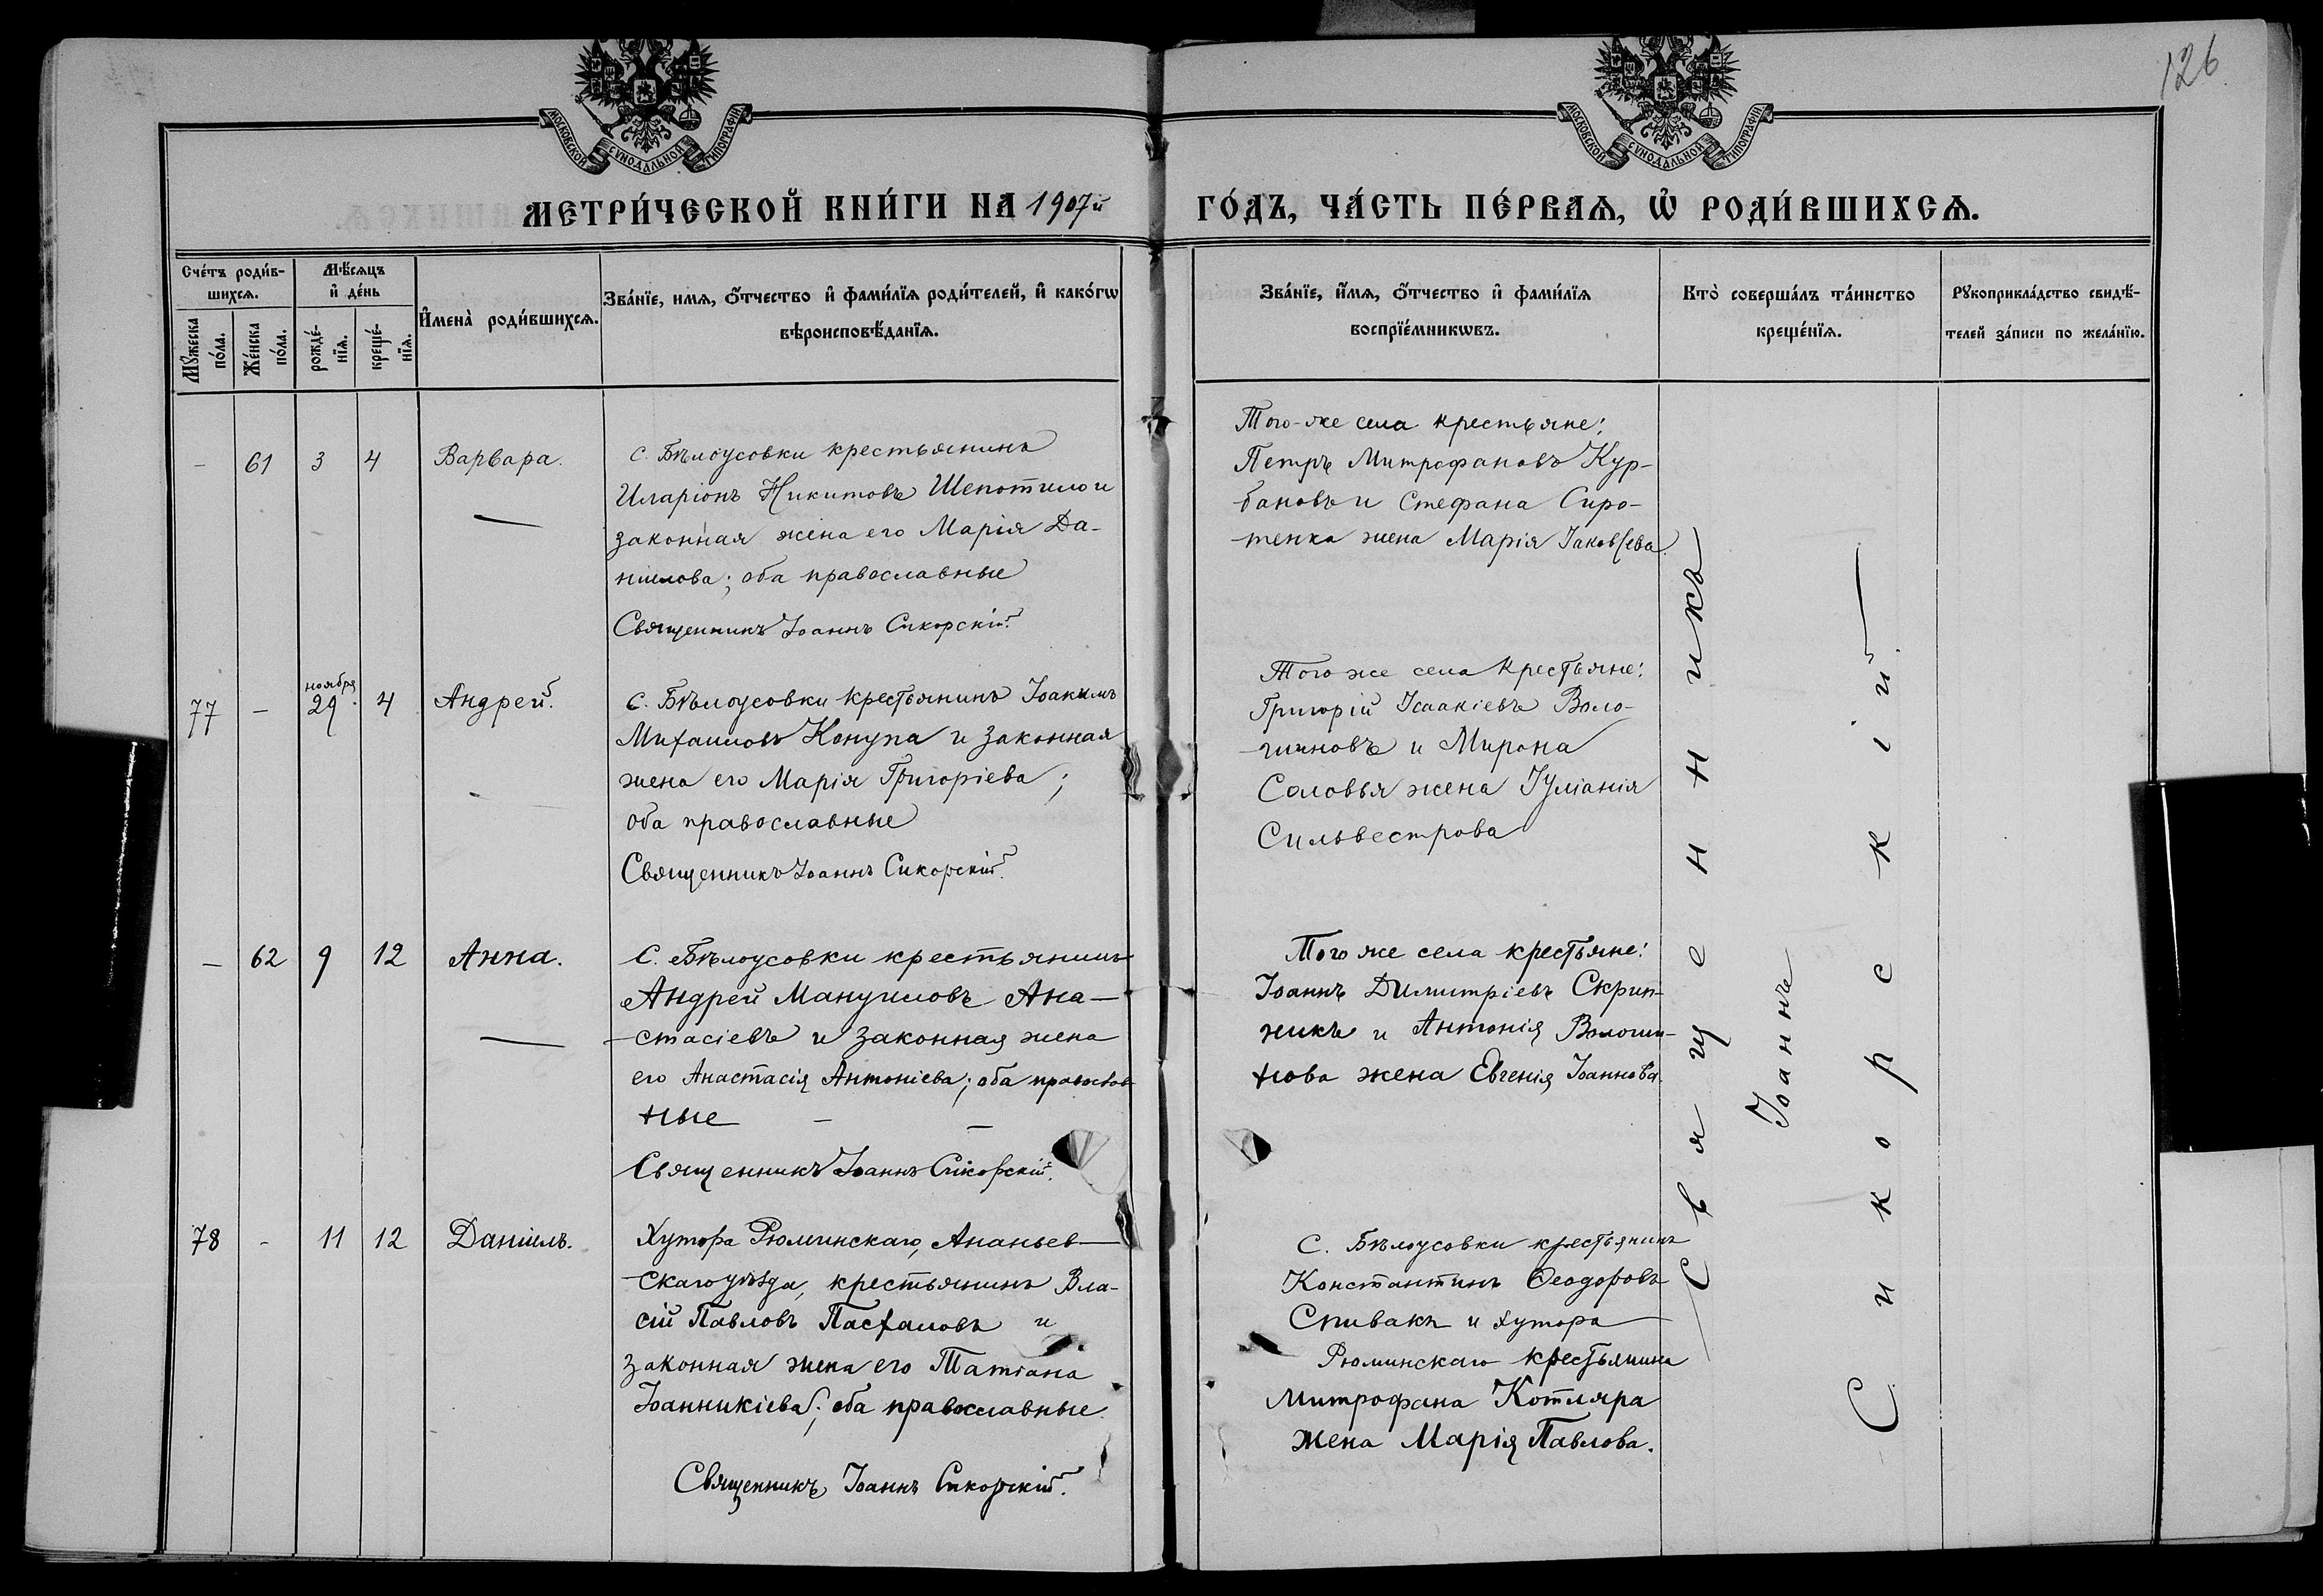 126
МОСКОВСКОЙ СУНОДАЛЬНОЙ ТИПОГРАФІИ
МОСКОВСКОЙ СУНОДАЛЬНОЙ ТИПОГРАФІИ
МЕТРИ́ЧЕСКОЙ КНИ́ГИ НА 1907й
ГО́ДЪ, ЧА́СТЬ ПЕ́РВАѦ, Ѡ҆ РОДИ́ВШИХСѦ.
Сче́тъ роди́в-
шихсѧ.
Мѣ́сѧцъ
и҆ де́нь
Мꙋ́жеска
по́ла.
Же́нска
по́ла.
рожде́-
нїѧ.
креще́-
нїѧ.
И҆мена̀ роди́вшихсѧ.
Зва́нїе, имѧ, ѻ҆́тчество и҆ фами́лїѧ роди́телей, и҆ како́гѡ
вѣроисповѣ́данїѧ.
Зва́нїе, и҆́мѧ, ѻ҆́тчество и҆ фами́лїѧ
воспрїе́мникѡвъ.
Кто̀ соверша́лъ та́инство
креще́нїѧ.
Рꙋкоприкла́дство свидѣ́-
телей за́писи по жела́нїю.
- 61 3 4 Варвара.
с. Бѣлоусовки крестьянинъ
Иларіонъ Никитовъ Шепотило и
законная жена его Марія Да-
ниилова; оба православные
Священникъ Іоаннъ Сикорскій.
Того-же села крестьяне:
Петръ Митрофановъ Кур-
бановъ и Стефана Сиро-
тенка жена Марія Іаковлева.
77 - ноября 29. 4 Андрей.
с. Бѣлоусовки крестьянинъ Іоакимъ
Михаиловъ Конупа и законная
жена его Марія Григоріева;
оба православные
Священникъ Іоаннъ Сикорскій.
Того же села крестьяне:
Григорій Исаакіевъ Воло-
гиновъ и Мирона
Соловья жена Іуліанія
Сильвестрова
- 62 9 12 Анна.
С. Бѣлоусовки крестьянинъ
Андрей Мануиловъ Ана-
-стасіевъ и законная жена
его Анастасія Антоніева; оба православ-
ные
Священникъ Іоаннъ Сикорскій.
Того же села крестьяне:
Іоаннъ Димитріевъ Скрип-
никъ и Антонія Вологи-
нова жена Евгенія Іоаннова.
78 - 11 12 Даніилъ.
Хутора Рюминскаго, Ананьев-
скаго уѣзда, крестьянинъ Вла-
сій Павловъ Пасхаловъ и
законная жена его Татіана
Іоанникіева; оба православные.
Священникъ Іоаннъ Сикорскій.
с. Бѣлоусовки крестьянинъ
Константинъ Ѳеодоровъ
Спивакъ и хутора
Рюминскаго крестьянина
Митрофана Котляра
жена Марія Павлова.
Священникъ
Іоаннъ
Сикорскій.